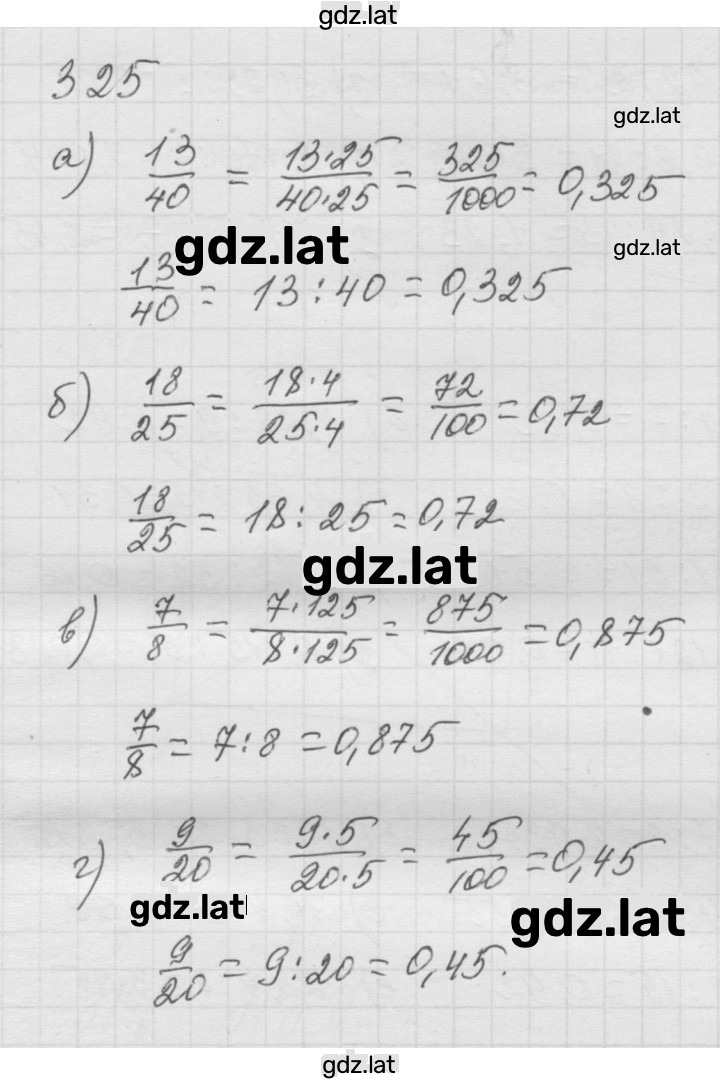 gdz.lat
325
gdz.lat
а) 13/40 = 13·25/40·25 = 325/1000 = 0,325
gdz.lat
gdz.lat
13/40 = 13:40 = 0,325
б) 18/25 = 18·4/25·4 = 72/100 = 0,72
18/25 = 18:25 = 0,72
gdz.lat
в) 7/8 = 7·125/8·125 = 875/1000 = 0,875
7/8 = 7:8 = 0,875
г) 9/20 = 9·5/20·5 = 45/100 = 0,45
gdz.lat
gdz.lat
9/20 = 9:20 = 0,45.
gdz.lat